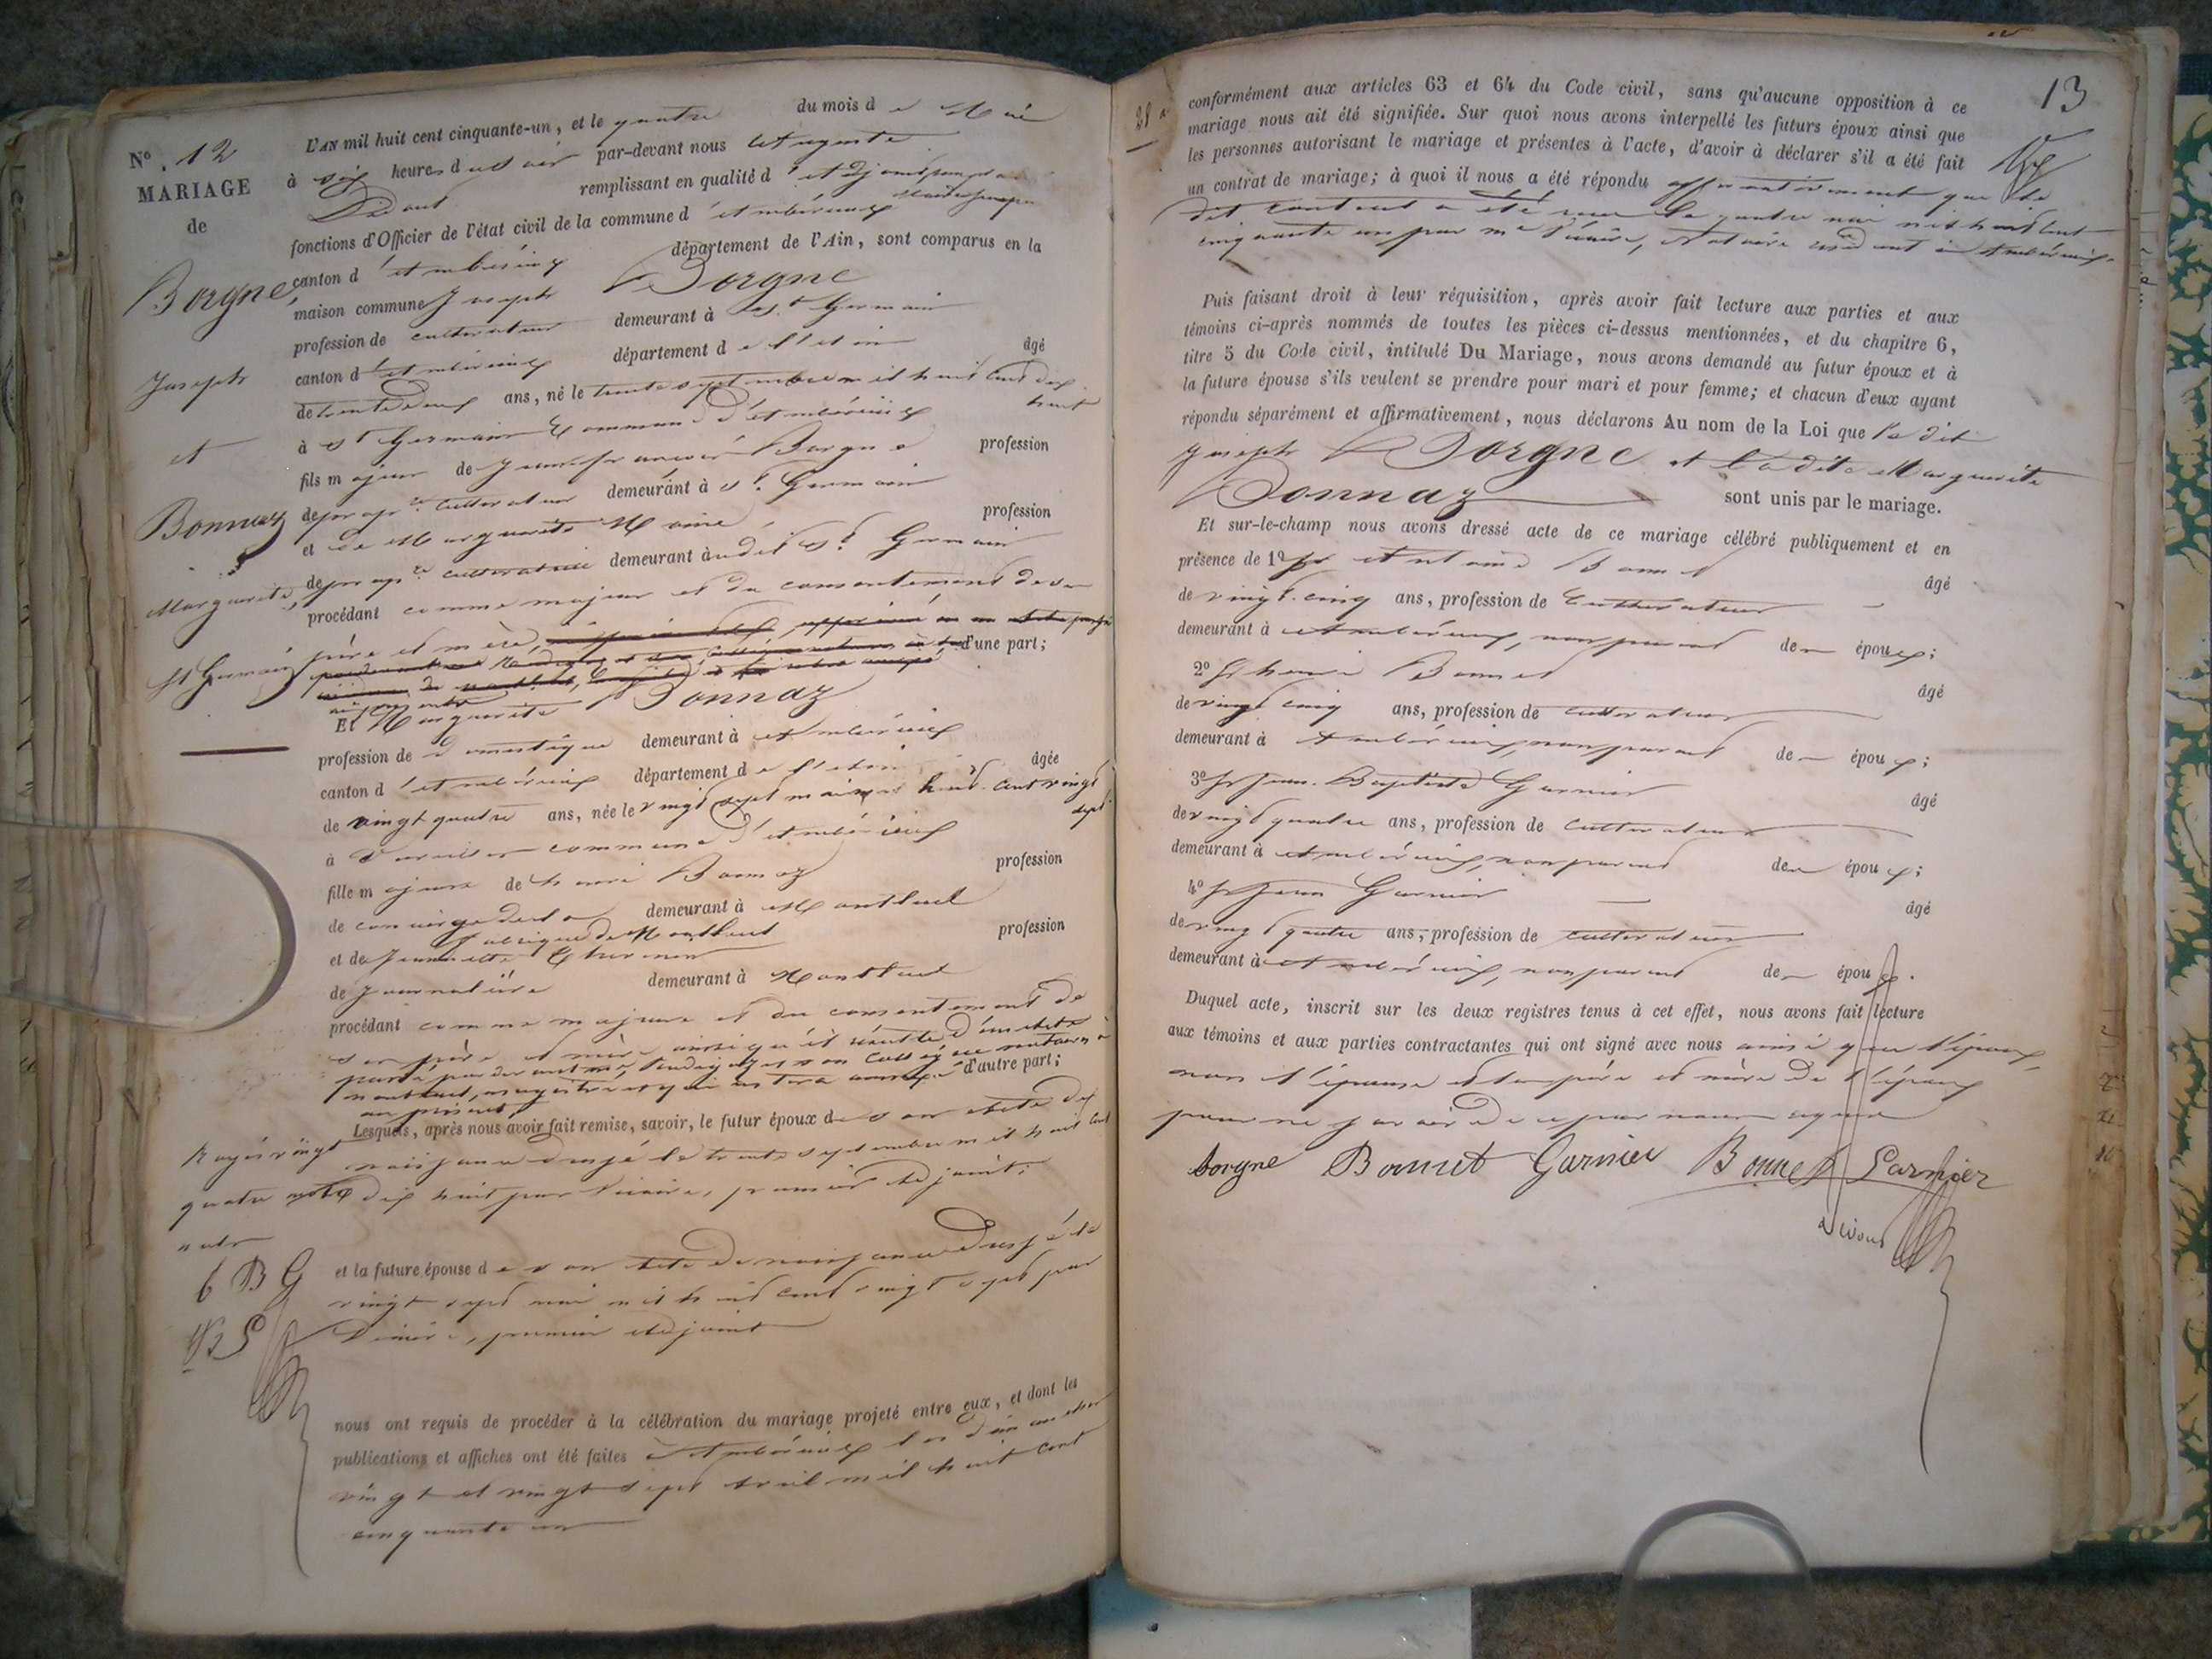 N° 12
MARIAGE
de
Borgne
Joseph
et
Bonnaz
Marguerite,
St Germain
Rayés vingt
quatre mots
nuls
L'AN mil huit cent cinquante-un, et le quatre du mois de Mai
à six heures du soir par-devant nous Auguste
remplissant en qualité d'adjoint
fonctions d'Officier de l'état civil de la commune d'Ambérieux
canton d'Ambérieux département de l'Ain, sont comparus en la
maison commune Joseph Borgne
profession de cultivateur demeurant à St Germain
canton d'Ambérieux département de l'Ain âgé
de trente deux ans, né le trente septembre mil huit cent dix
huit
à St Germain Commune d'Ambérieux
fils majeur de Jean françois Borgne profession
de propre cultivateur demeurant à St Germain
et de Marguerite profession
de propre cultivatrice demeurant à udit St Germain
procédant comme majeur et du consentement de ses
père et mère,
d'une part;
Et Marguerite Bonnaz
profession de domestique demeurant à Ambérieux
canton d'Ambérieux département de l'Ain âgée
de vingt quatre ans, née le vingt sept mai mil huit cent vingt
sept
à commune d'Ambérieux
fille majeure de henri Bonnaz profession
de concierge de la demeurant à Montluel
fabrique de Montluel
et de Jeannette profession
de Journalière demeurant à Montluel
procédant comme majeure et du consentement de
son père et mère ainsi qu'il résulte d'un acte
passé par devant me et son collègue notaires à
Montluel, enregistré et qui restera annexé d'autre part;
au présent,
Lesquels, après nous avoir fait remise, savoir, le futur époux de son acte de
naissance dressé le trente septembre mil huit cent
dix huit par premier adjoint.
et la future épouse de son acte de naissance dressé le
vingt sept mai mil huit cent vingt sept par
premier adjoint
nous ont requis de procéder à la célébration du mariage projeté entre eux, et dont les
publications et affiches ont été faites à Ambérieux les dimanches
vingt et vingt sept avril mil huit cent
cinquante un
13
conformément aux articles 63 et 64 du Code civil, sans qu'aucune opposition à ce
mariage nous ait été signifiée. Sur quoi nous avons interpellé les futurs époux ainsi que
les personnes autorisant le mariage et présentes à l'acte, d'avoir à déclarer s'il a été fait
un contrat de mariage; à quoi il nous a été répondu affirmativement que le
dit contrat a été reçu le quatre mai mil huit cent
cinquante un par me notaire résidant à Ambérieux.
Puis faisant droit à leur réquisition, après avoir fait lecture aux parties et aux
témoins ci-après nommés de toutes les pièces ci-dessus mentionnées, et du chapitre 6,
titre 5 du Code civil, intitulé Du Mariage, nous avons demandé au futur époux et à
la future épouse s'ils veulent se prendre pour mari et pour femme; et chacun d'eux ayant
répondu séparément et affirmativement, nous déclarons Au nom de la Loi que le dit
Joseph Borgne et la dite Marguerite
Bonnaz sont unis par le mariage.
Et sur-le-champ nous avons dressé acte de ce mariage célébré publiquement et en
présence de 1° Sr Antoine Bonnet âgé
de vingt-cinq ans, profession de Cultivateur
demeurant à Ambérieux, non parent de époux;
2° Sr henri Bonnet âgé
de vingt cinq ans, profession de cultivateur
demeurant à Ambérieux, non parent de époux;
3° Sr Jean-Baptiste Garnier âgé
de vingt quatre ans, profession de cultivateur
demeurant à Ambérieux, non parent de époux;
4° Sr Jean Garnier âgé
de vingt quatre ans, profession de cultivateur
demeurant à Ambérieux, non parent de époux.
Duquel acte, inscrit sur les deux registres tenus à cet effet, nous avons fait lecture
aux témoins et aux parties contractantes qui ont signé avec nous ainsi que l'époux,
non l'épouse et les père et mère de l'époux
pour ne savoir de ce par nous requis
borgne Bonnet Garnier Bonnet Garnier